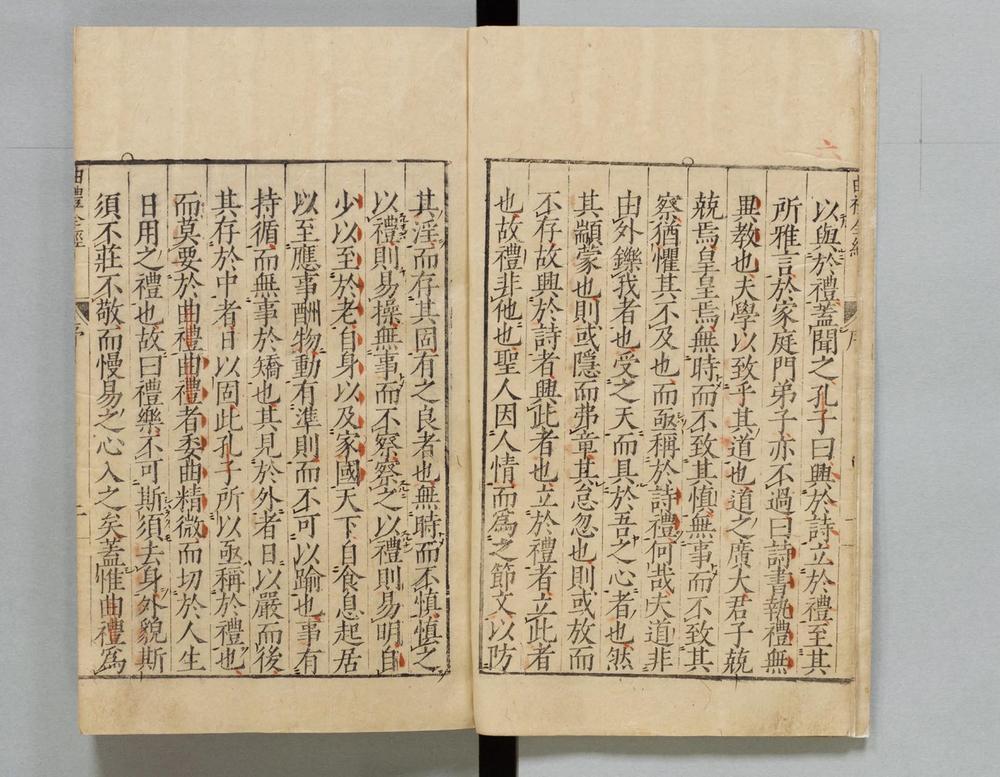 以與於禮蓋聞之孔子曰興於詩立於禮至其
所雅言於家庭門弟子亦不過曰詩書執禮無
異教也夫學以致乎其道也道之廣大君子兢
兢焉皇皇焉無時而不致其慎無事而不致其
察猶懼其不及也而亟稱於詩禮何哉夫道非
由外鑠我者也受之天而具於吾之心者也然
其顓蒙也則或隱而弗章其怠忽也則或放而
不存故興於詩者興此者也立於禮者立此者
也故禮非他也聖人因人情而為之節文以防
其淫而存其固有之良者也無時而不慎慎之
以禮則易操無事而不察察之以禮則易明自
少以至於老自身以及家國天下自食息起居
以至應事酬物動有準則而不可以踰也事有
持循而無事於矯也其見於外者日以嚴而後
其存於中者日以固此孔子所以亟稱於禮也
而莫要於曲禮曲禮者委曲精微而切於人生
日用之禮也故曰禮樂不可斯須去身外貌斯
須不莊不敬而慢易之心入之矣蓋惟曲禮為
曲禮全經
序
二